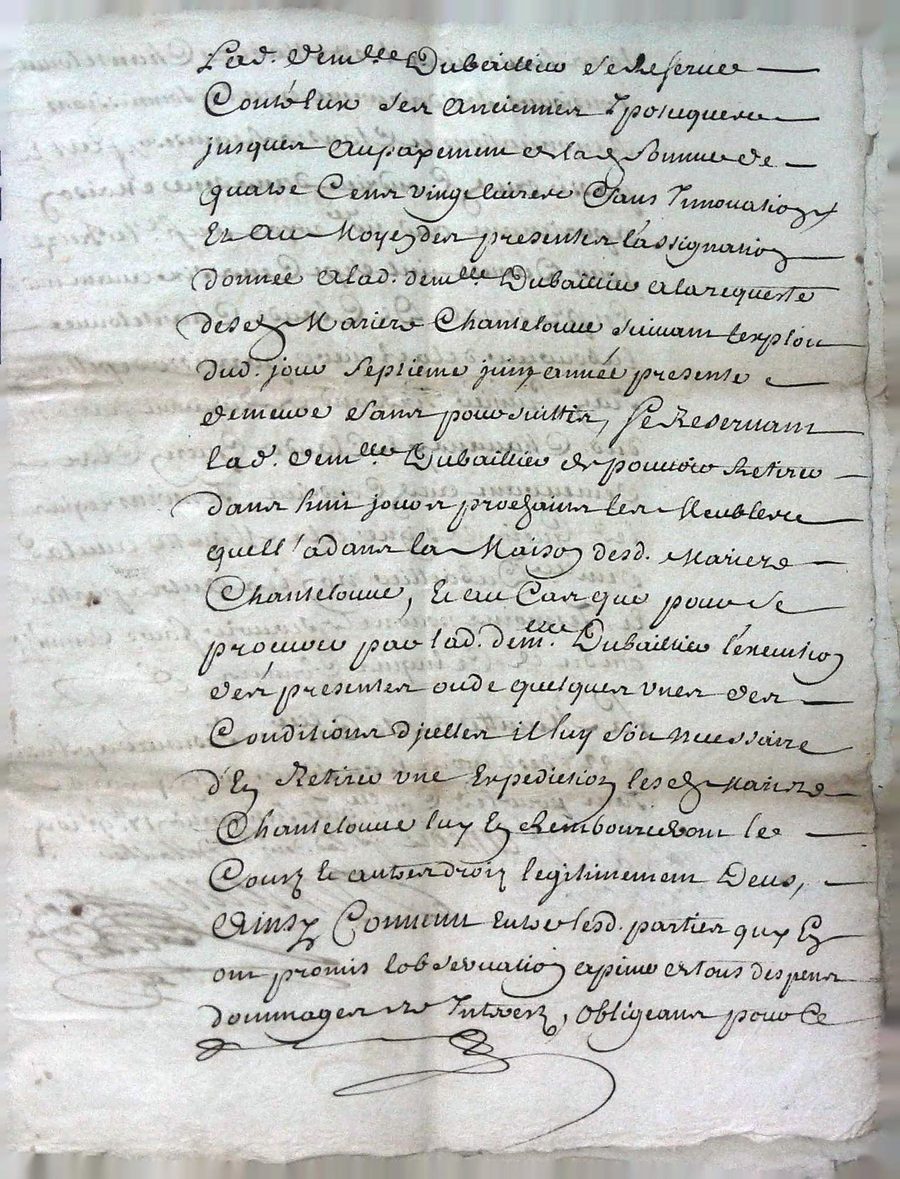 Lad. demlle Dubaillieu se Reserue
Contr'eux ses anciennes Ipotequeue
jusques au payement de lad. Somme de
quatre Cens vingt liures sans Innouation
Et au Moyen des presentes l'assignation
donnée a lad. demlle Dubaillieu a la requeste
desd. Mariere Chantelouue suiuant l'exploit
dud. jour septieme juin année presente
demeure sans poursuittes, Se Reseruant
lad. demlle Dubaillieu de pouuoir Retirer
dans huit jours prochains les Meubleue
quell'a dans la Maison desd. Mariere
Chantelouue, Et au Cas que pour se
procurer par lad. demlle Dubaillieu l'execution
des presentes ou de quelques vnes des
Conditions d'jcelles il luy soit necessaire
d'En Retirer vne Expedition lesd. Mariere
Chantelouue luy En Rembourceront le
Coust et autres droits legitimement Deus,
Ainsy Conuenu Entre lesd. parties quy En
ont promis l'obseruation a peine de tous despens
dommages et Interets, obligeans pour ce